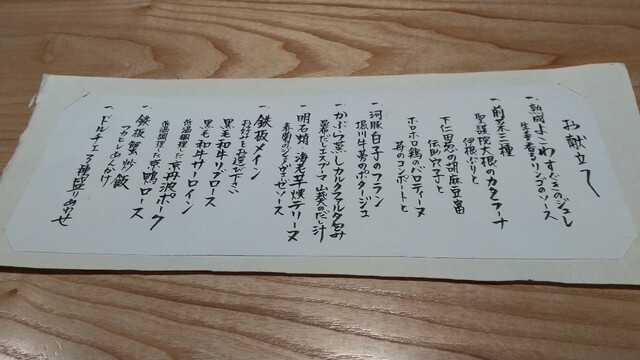 お献立て
一、朝〆よこわすぐきのジュレ
生姜香るリンゴのソース
一、前菜三種
聖護院大根のカタラーナ
伊根ぶりと
下仁田葱の胡麻豆富
伝助穴子と
ホロホロ鶏のバロティーヌ
苺のコンポートと
一、河豚白子のフラン
堀川牛蒡のポタージュ
一、かぶら蒸しカルタファタ包み
昆布だしエスプーマ 山葵のだし汁
一、明石蛸 海老芋 燻テリーヌ
春菊のジェノヴェーゼソース
一、鉄板メイン
お好みをお選び下さい
黒毛和牛イチボロース
黒毛和牛サーロイン
低温調理した京丹波ポーク
低温調理した京鴨ロース
一、鉄板 蟹炒飯
フカヒレあんかけ
一、ドルチェ3種盛り合わせ